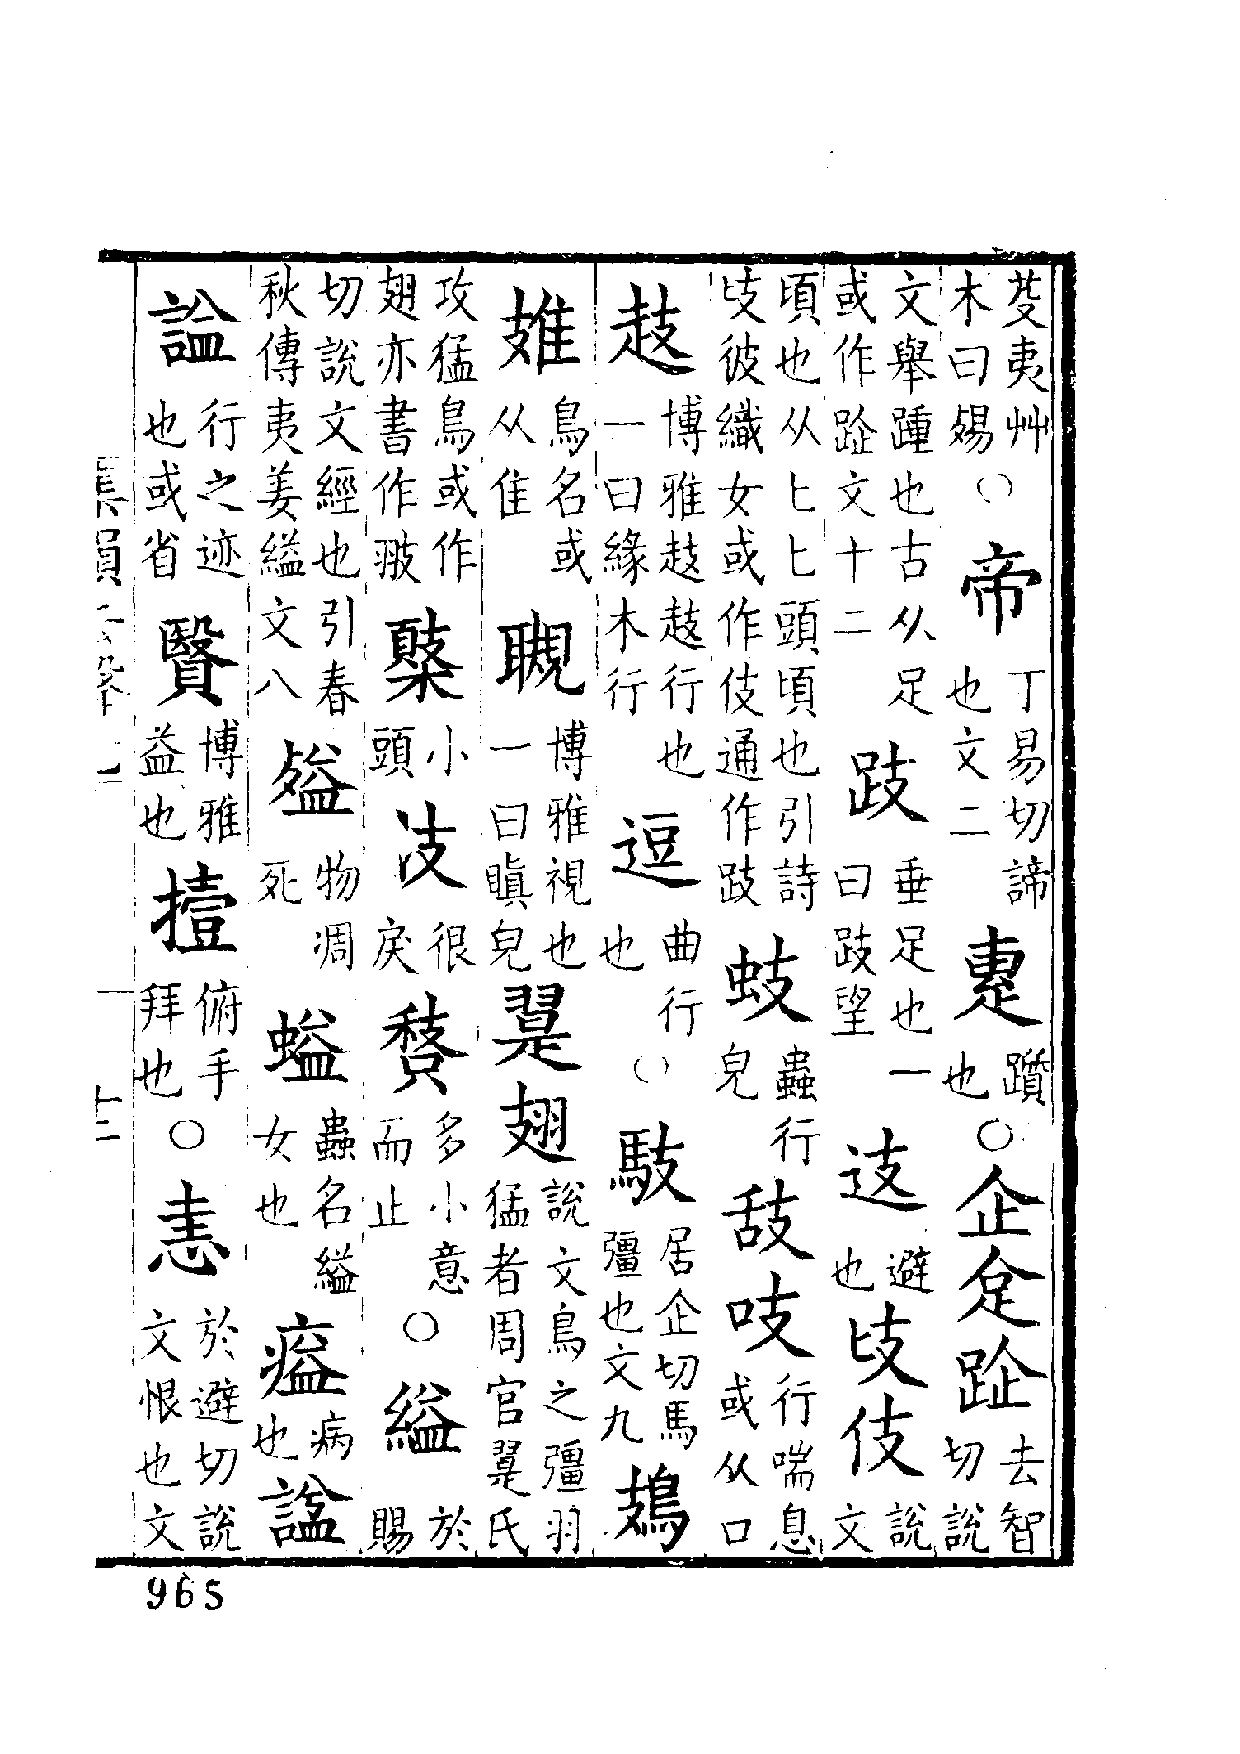 芟夷艸木曰 ○ 帝 丁易切諦也文二 疐 躓也 ○ 企 𠈮 趾 去智切說
文舉踵也古从足或作文十二 跂 垂足也一曰跂望 避也 伎 說文
頃也从匕匕頭頃也引詩彼織女或作伎通作跂 蚑 蟲行皃 吱 行喘息或从口
䞚 博雅䞚䞚行也一曰緣木行 逗 曲行也 ○ 馶 居企切馬彊也文九 鳷
鳥名或从隹 博雅視也一曰瞋皃 翨 翅 說文鳥之彊羽猛者周官翨氏
攻猛鳥或作翅亦書作 小頭 很戾 多小意而止 ○ 縊 於賜
切說文經也引春秋傳夷姜縊文八 物凋死 螠 蟲名縊女也 病也
行之迹也或省 博雅益也 俯手拜也 ○ 恚 於避切說文恨也文
十二
965